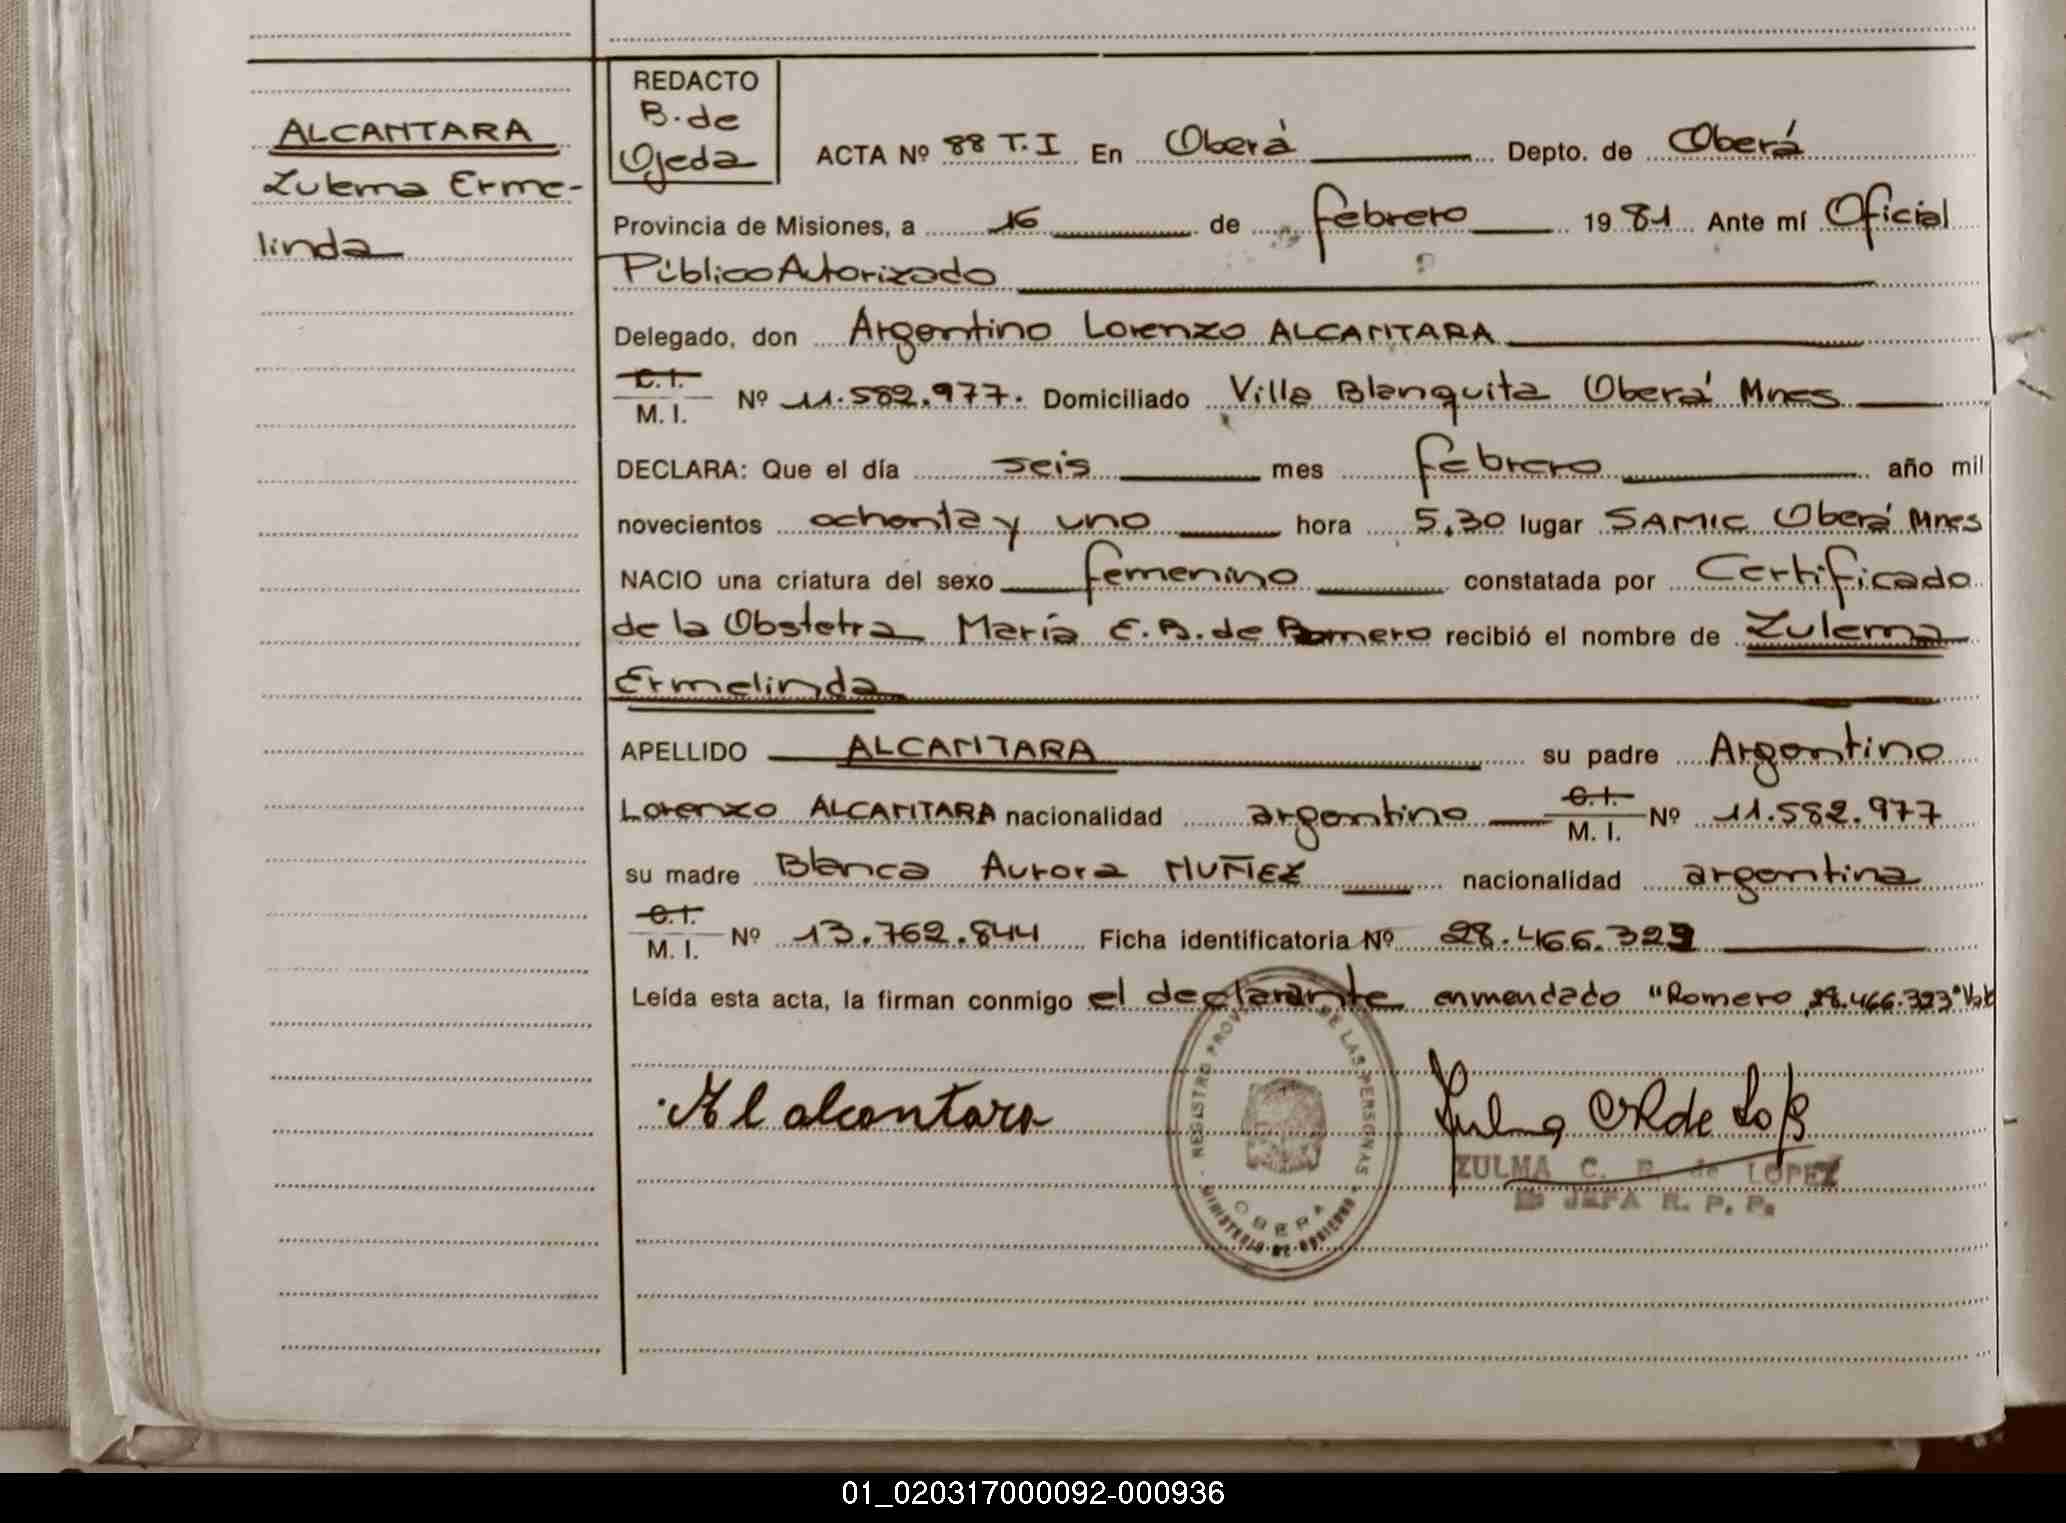 ALCANTARA
Zulema Erme-
linda
REDACTO
B. de
Ojeda
ACTA Nº 88 T.I En Oberá Depto. de Oberá
Provincia de Misiones, a 16 de febrero 1981 Ante mí Oficial
Público Autorizado
Delegado, don Argentino Lorenzo ALCANTARA
C.I.
M. I. Nº 11.582.977. Domiciliado Villa Blanquita Oberá Mnes
DECLARA: Que el día seis mes febrero año mil
novecientos ochenta y uno hora 5,30 lugar SAMIC Oberá Mnes
NACIO una criatura del sexo femenino constatada por Certificado
de la Obstetra María E. B. de Romero recibió el nombre de Zulema
Ermelinda
APELLIDO ALCANTARA su padre Argentino
Lorenzo ALCANTARA nacionalidad argentino C.I. M. I. Nº 11.582.977
su madre Blanca Aurora NUÑEZ nacionalidad argentina
C.I.
M. I. Nº 13.762.844 Ficha identificatoria Nº 28.466.323
Leída esta acta, la firman conmigo el declarante enmendado "Romero, 28.466.323" Vale
A l alcantara
REGISTRO PROV. DE LAS PERSONAS
OBERA
MINISTERIO DE GOBIERNO
ZULMA C. R. de LOPEZ
JEFA R. P. P.
01_020317000092-000936